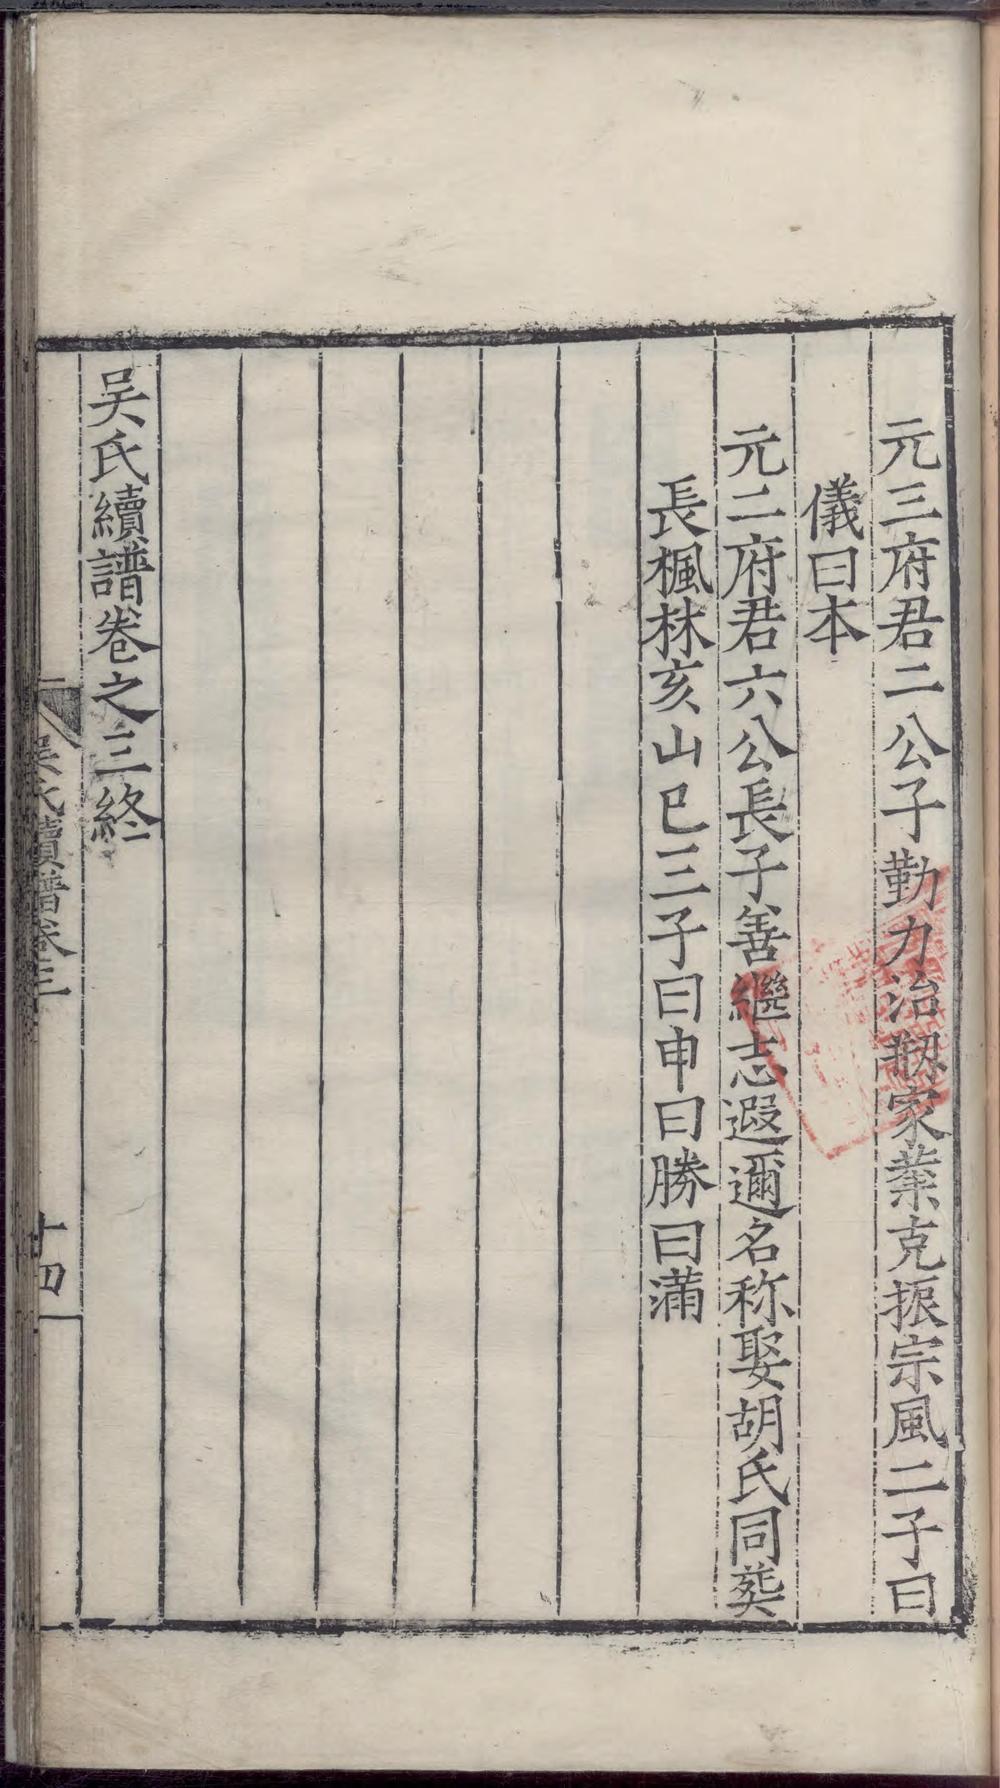 元三府君二公子勤力治㓜家業克振宗風二子曰
儀曰本
元二府君六公長子善繼志遐邇名称娶胡氏同葬
長楓林亥山巳三子曰申曰勝曰滿
吴氏續譜卷之三終
吴氏續譜卷三
十四